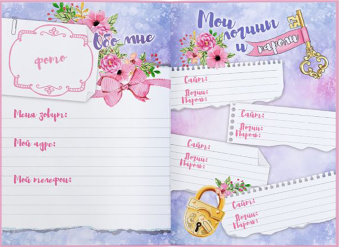 Обо мне
фото
Меня зовут:
Мой адрес:
Мой телефон:
Мои
логины
и пароли
Сайт:
Логин:
Пароль:
Сайт:
Логин:
Пароль:
Сайт:
Логин:
Пароль:
Сайт:
Логин:
Пароль: